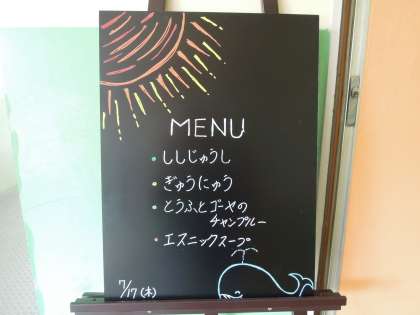 MENU
・ししじゅうし
・ぎゅうにゅう
・とうふとゴーヤの
チャンプルー
・エスニックスープ
7/17(木)